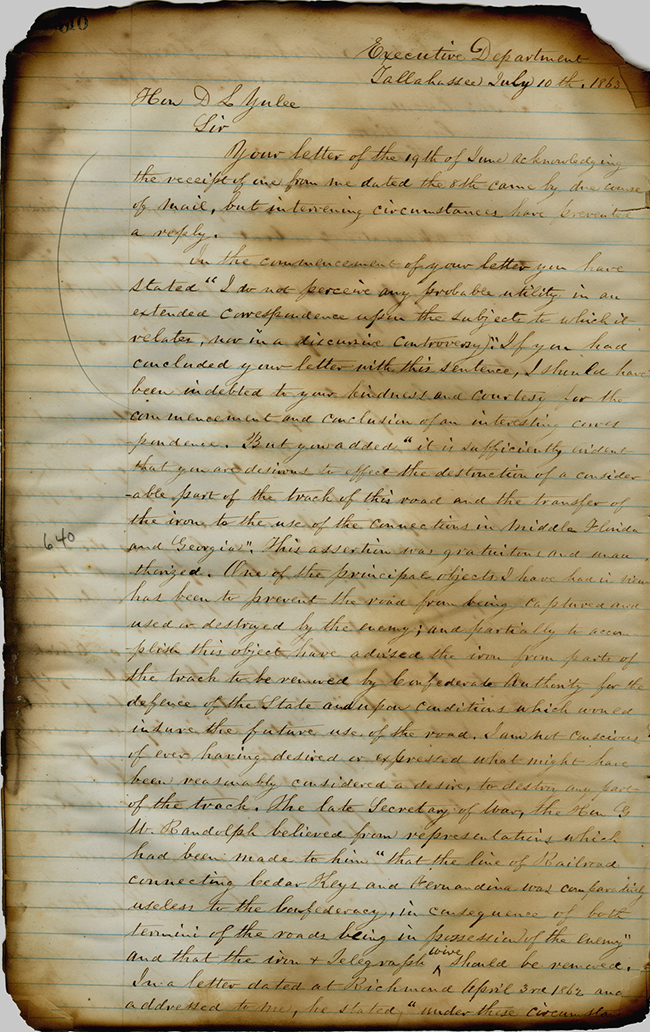 Executive Department
Tallahassee July 10th. 1863
Hon D L Yulee
Sir
Your letter of the 19th of June acknowledging
the receipt of one from me dated the 8th came by due course
of mail, but intervening circumstances have prevented
a reply.
In the commencement of your letter you have
stated "I do not perceive any probable utility in an
extended correspondence upon the subjects to which it
relates, nor in a discursive controversy". If you had
concluded your letter with this sentence, I should have
been indebted to your kindness and courtesy for the
commencement and conclusion of an interesting corres
pondence. But you added "it is sufficiently evident
that you are desirous to effect the destruction of a consider
-able part of the track of this road and the transfer of
the iron to the use of the connections in Middle Florida
640
and Georgia". This assertion was gratuitous and unau
thorized. One of the principal objects I have had in view
has been to prevent the road from being captured and
used or destroyed by the enemy; and partially to accom
plish this object have advised the iron from parts of
the track to be removed by Confederate Authority for the
defence of the State and upon conditions which would
insure the future use of the road. I am not conscious
of ever having desired or expressed what might have
been reasonably considered a desire, to destroy any part
of the track. The late Secretary of War, the Hon G
W. Randolph believed from representations which
had been made to him "that the line of Railroad
connecting Cedar Keys and Fernandina was comparatively
useless to the Confederacy, in consequence of both
termini of the roads being in possession of the enemy"
and that the iron & Telegraph wire should be removed.
In a letter dated at Richmond April 3rd 1862 and
addressed to me, he stated, "under these circumstan